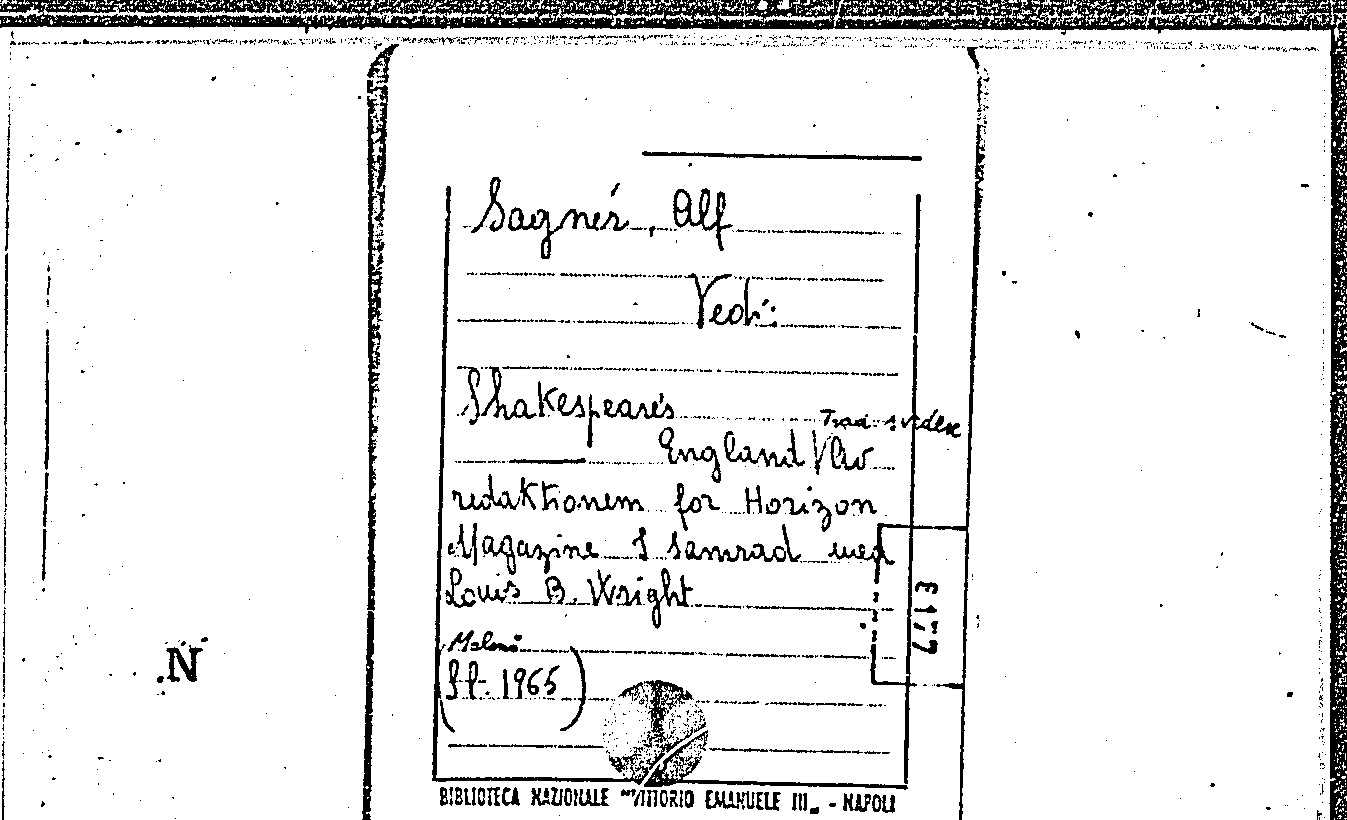 Sagnér, Alf
Vedi:
Shakespeares
Trad. svedese
England / Av
redaktionem for Horizon
Magazine I samrad med
Louis B. Wright
Malmö
(S.l. 1965)
E 177
.N
BIBLIOTECA NAZIONALE "VITTORIO EMANUELE III" - NAPOLI